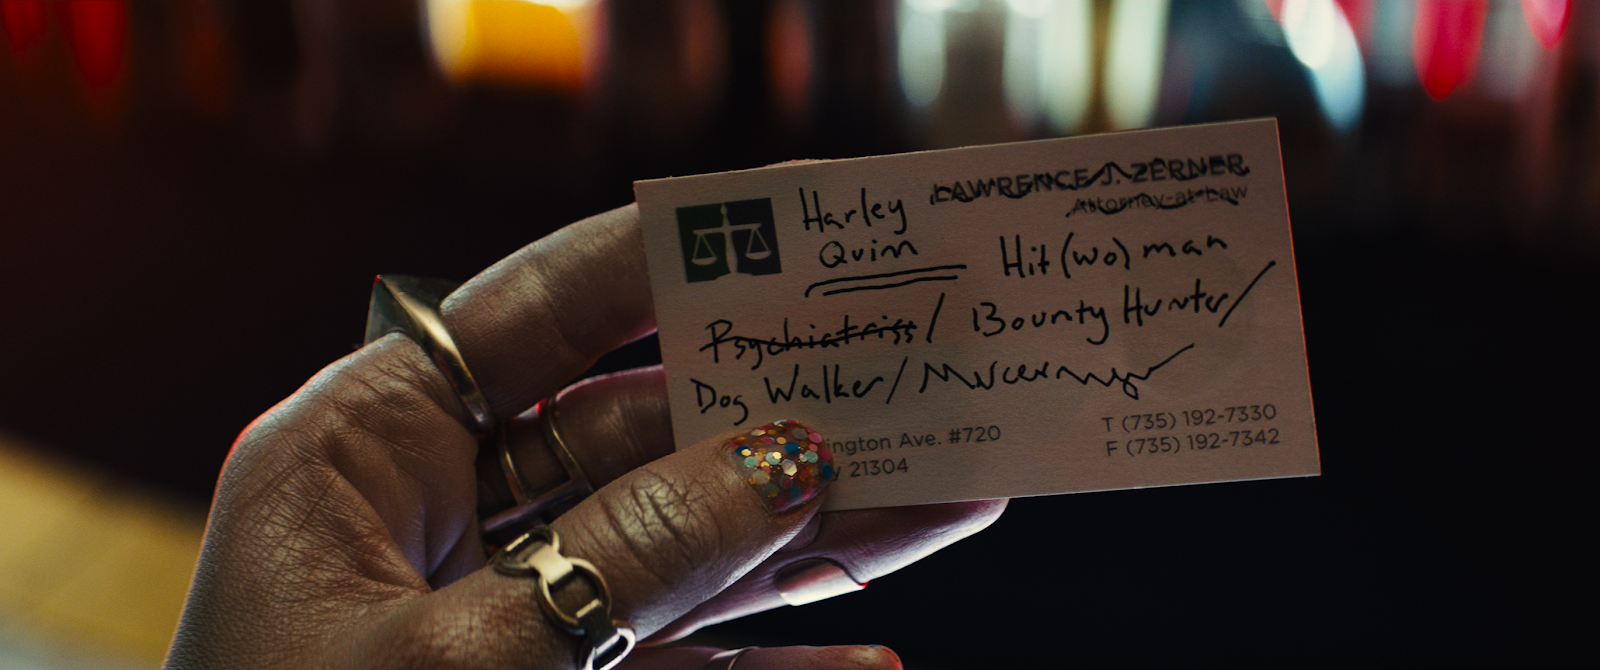 LAWRENCE J. ZERNER
Attorney-at-Law
Harley
Quinn
Hit(wo)man
Psychiatrist/ Bounty Hunter/
Dog Walker/
ington Ave. #720
21304
T (735) 192-7330
F (735) 192-7342